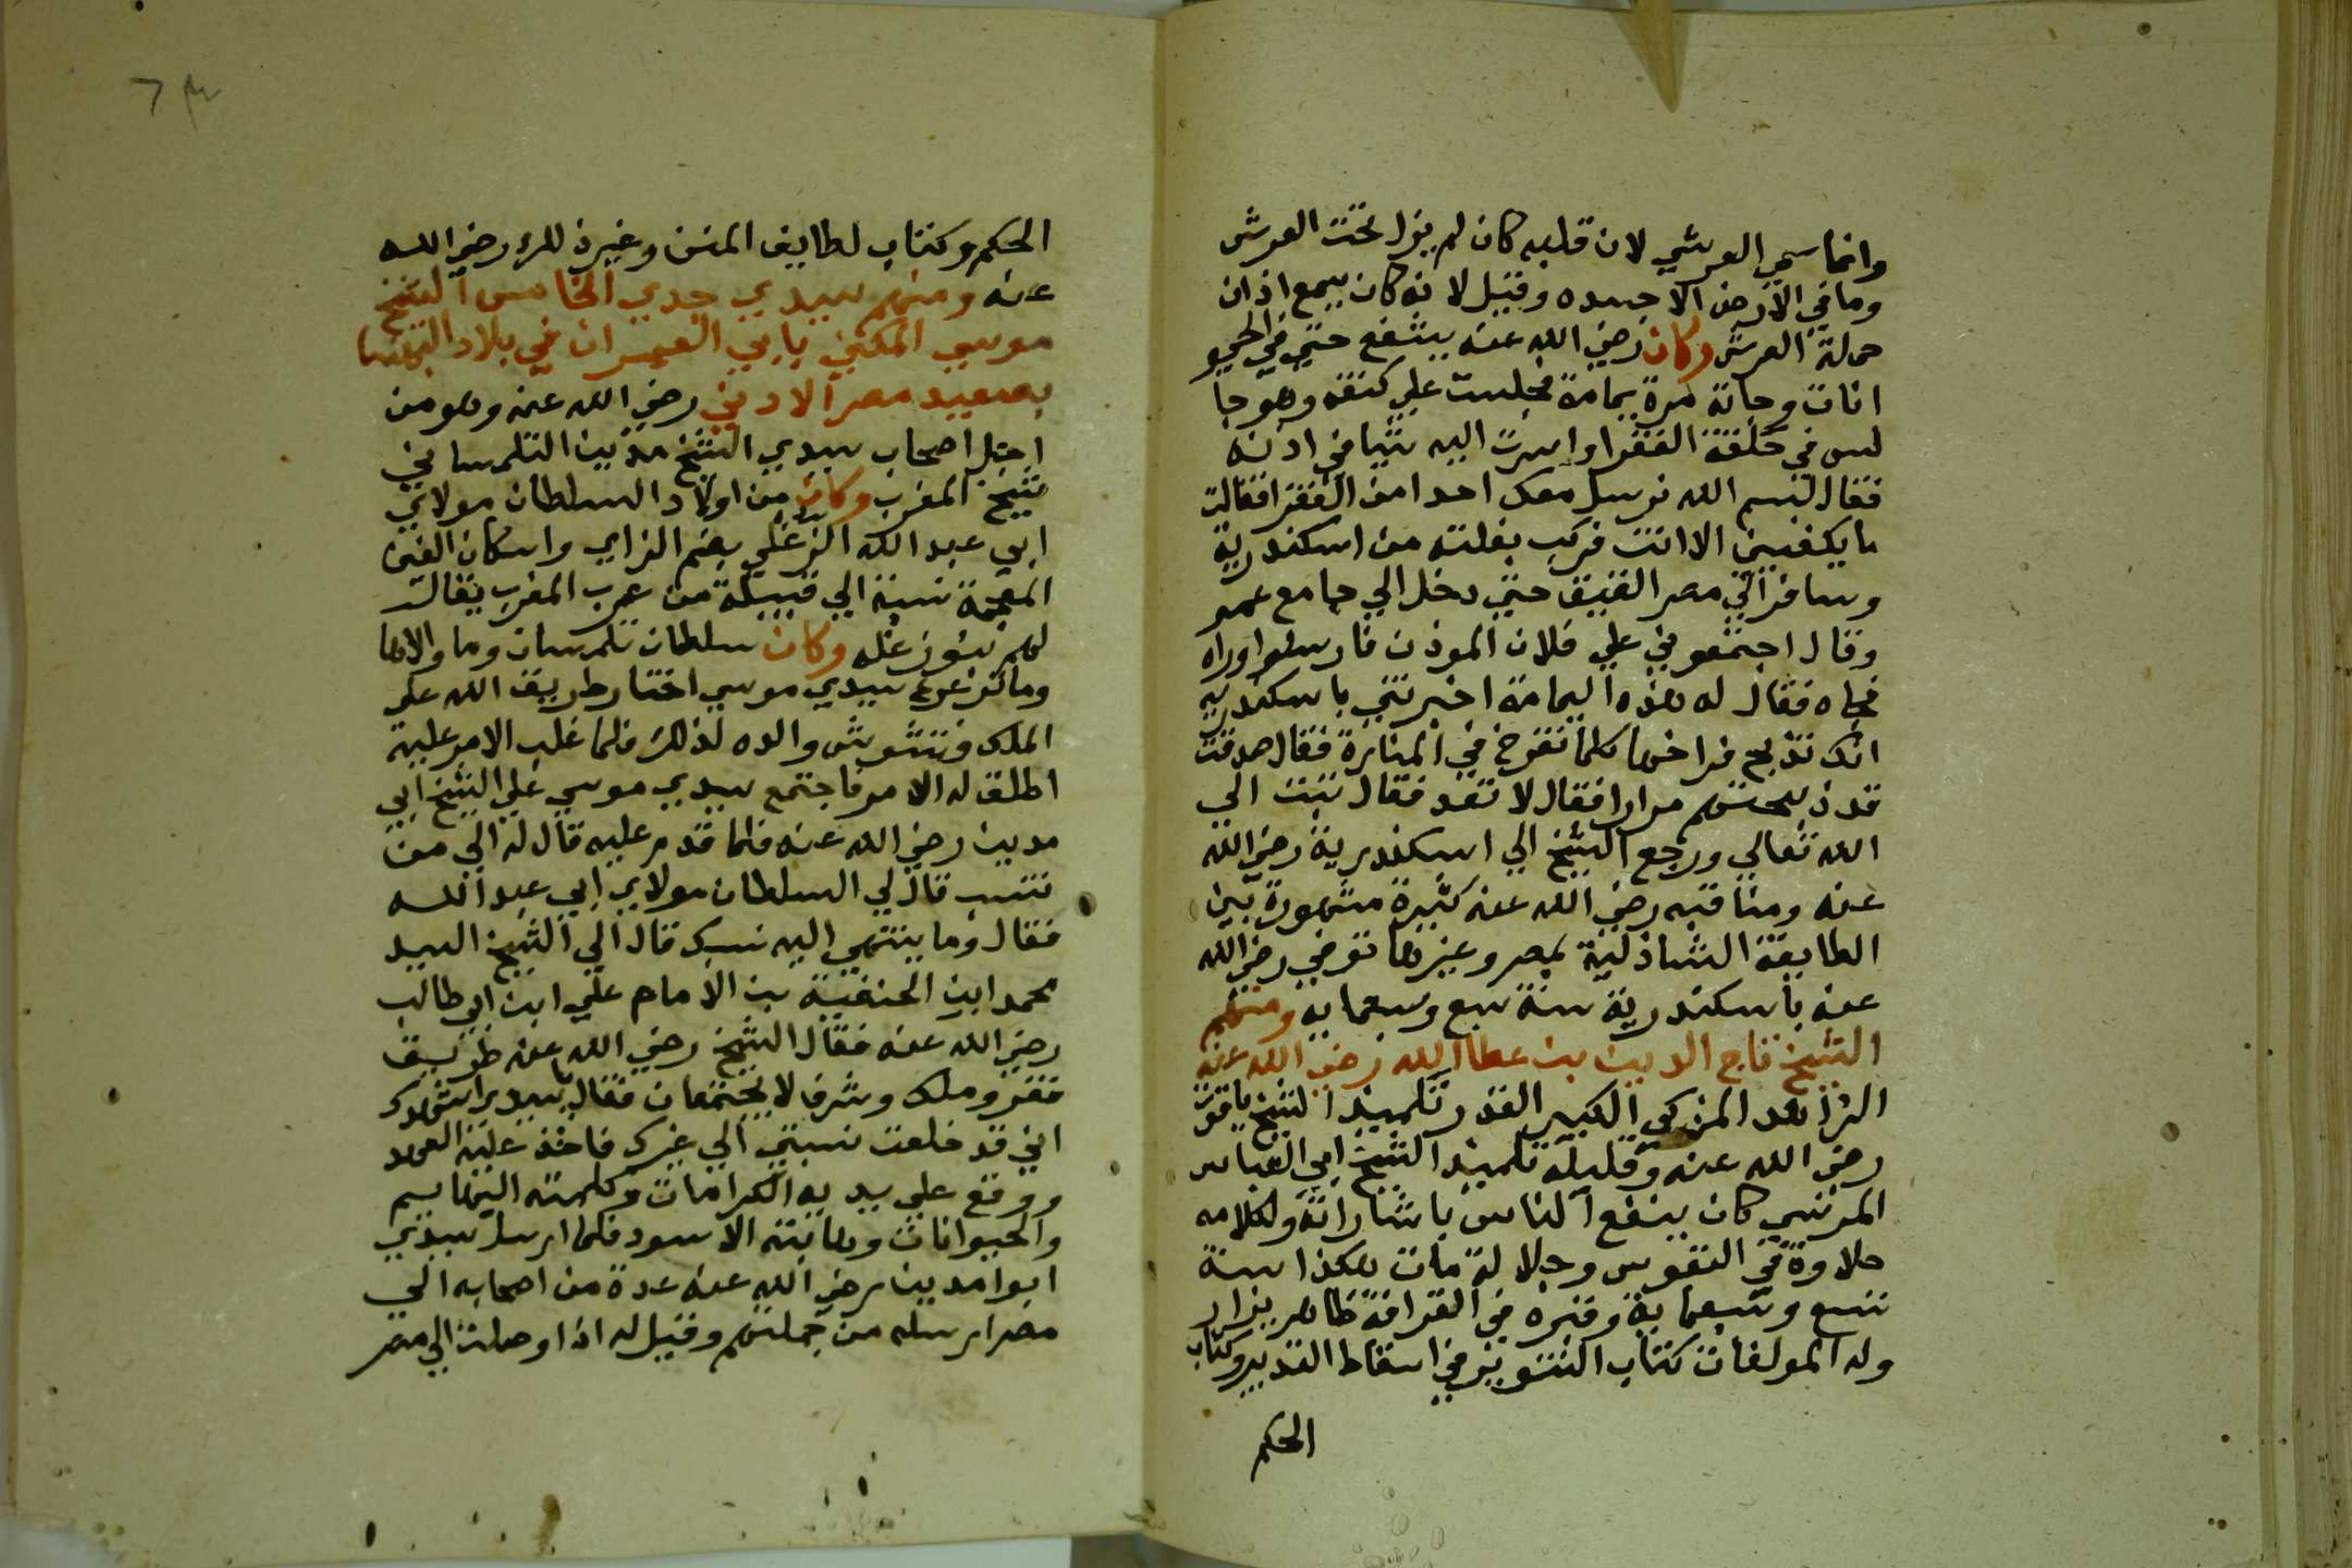 وانما سمي العرشي لان قلبه كان لم يزل تحت العرش
وما في الارض الا جسده وقيل لانه كان يسمع اذان
حملة العرش وكان رضي الله عنه يشفع حتي في الحيو
انات وجاته مرة يمامة فجلست علي كتفه وهو جا
لس في حلقة الفقرا واسرت اليه شيا في اذنه
فقال بسم الله نرسل معك احدا من الفقرا فقالت
ما يكفيني الا انت فركب بغلته من اسكندرية
وسافر الي مصر العتيق حتي دخل الي جامع عمر
وقال اجمعوني علي فلان الموذن فارسلوا وراه
فجاه فقال له هذه اليمامة اخبرتني باسكندريه
انك تذبح فراخها كلما تفرخ في المنارة فقال صدقت
قد ذبحتهم مرارا فقال لا تعد فقال تبت الي
الله تعالي ورجع الشيخ الي اسكندرية رضي الله
عنه ومناقبه رضي الله عنه كثيرة مشهورة بين
الطايفة الشاذلية بمصر وغيرها توفي رضي الله
عنه باسكندرية سنة سبع وسبعمايه ومنهم
الشيخ تاج الدين بن عطاالله رضي الله عنه
الزاهد المزكي الكبير القدر تلميذ الشيخ ياقوت
رضي الله عنه وقبله تلميذ الشيخ ابي العباس
المرسي كان ينفع الناس باشاراته ولكلامه
حلاوة في النفوس وجلالة مات هكذا سنة
تسع وسبعماية وقبره في القرافة ظاهر يزار
وله المولفات كتاب التنوير في اسقاط التدبير وكتاب
الحكم
٦٣
الحكم وكتاب لطايف المنن وغير ذلك رضي الله
عنه ومنهم سيدي جدي الخامس الشيخ
موسي المكني بابي العمران في بلاد البهنسا
بصعيد مصر الادني رضي الله عنه وهو من
اجل اصحاب سيدي الشيخ مدين التلمساني
شيخ المغرب وكان من اولاد السلطان مولاي
ابي عبد الله الزغلي بضم الزاي واسكان الغين
المعجمة نسبة الي قبيلة من عرب المغرب يقال
لهم بنو زغله وكان سلطان تلمسان وما والاها
وما ترعرع سيدي موسي اختار طريق الله علي
الملك فتشوش والده لذلك فلما غلب الامر عليه
اطلق له الامر فاجتمع سيدي موسي علي الشيخ ابي
مدين رضي الله عنه فلما قدم عليه قال له الي من
تنتسب قال لي السلطان مولاي ابي عبد الله
فقال وما ينتهي اليه نسبك قال الي الشيخ السيد
محمد ابن الحنفية بن الامام علي ابن ابي طالب
رضي الله عنه فقال الشيخ رضي الله عنه طريق
فقر وملك وشرف لا يجتمعان فقال ياسيدي اشهدك
اني قد خلعت نسبتي الي غيرك فاخذ عليه العهد
ووقع علي يديه الكرامات وكلمته البهايم
والحيوانات وهابته الاسود فلما ارسل سيدي
ابوا مدين رضي الله عنه عدة من اصحابه الي
مصر ارسله من جملتهم وقيل له اذا وصلت الي مصر